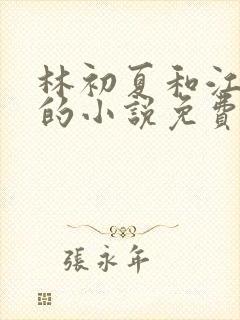 林初夏和江
的小説免費
張永年